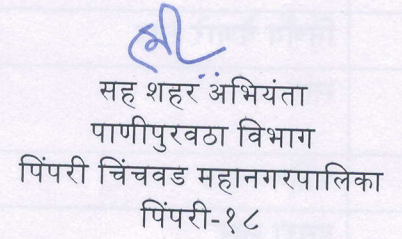 सह शहर अभियंता
पाणीपुरवठा विभाग
पिंपरी चिंचवड महानगरपालिका
पिंपरी-१८